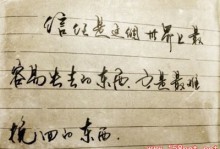 信任是这個世界上最
容易失去的东西,也是最难
挽回的东西.